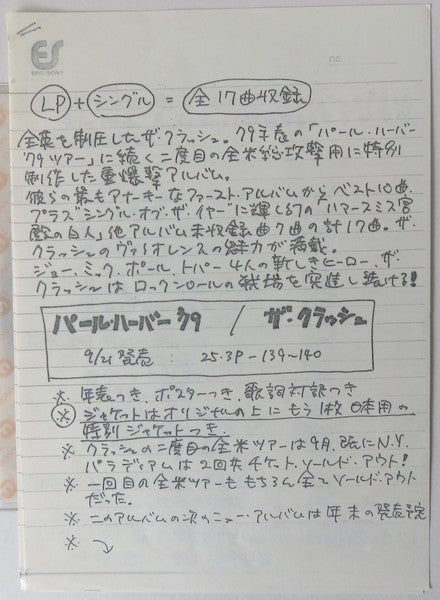 ES
EPIC SONY
NO.
LP + シングル = 全17曲収録
全英を制圧したザ・クラッシュ。79年春の「パール・ハーバー
'79ツアー」に続く二度目の全米総攻撃用に特別
制作した重爆撃アルバム。
彼らの最もアナーキーなファースト・アルバムからベスト10曲、
プラス"シングル・オブ・ザ・イヤー"に輝く幻の「ハマースミス宮
殿の白人」他アルバム未収録曲7曲の計17曲。ザ・
クラッシュのヴァイオレンスの魅力が満載。
ジョー、ミック、ポール、トパー4人の新しきヒーロー、ザ・
クラッシュはロックンロールの戦場を突進し続ける!
パール・ハーバー'79 / ザ・クラッシュ
9/21発売 : 25・3P-139~140
※ 年表つき、ポスターつき、歌詞対訳つき
※ ジャケットはオリジナルの上にもう1枚日本用の
特別ジャケットつき。
※ クラッシュの二度目の全米ツアーは9月、既にN.Y.
パラディアムは2回共チケット、ソールド・アウト!
※ 一回目の全米ツアーももちろん全てソールド・アウト
だった。
※ このアルバムの次のニュー・アルバムは年末の発売予定
※